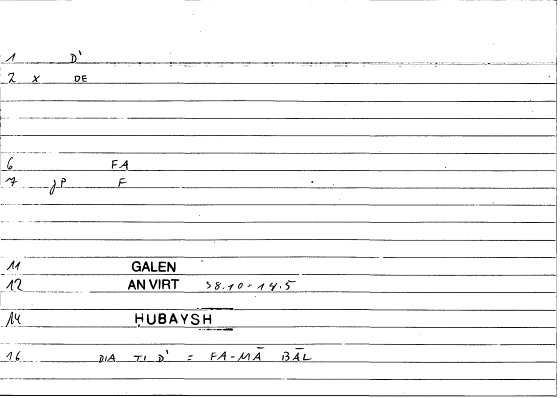 1 D'
2 x DE
6 FA
7 JP F
11 GALEN
12 AN VIRT 38.10 = 14.5
14 ḤUBAYSH
16 DIA TI D' = FA-MĀ BĀL